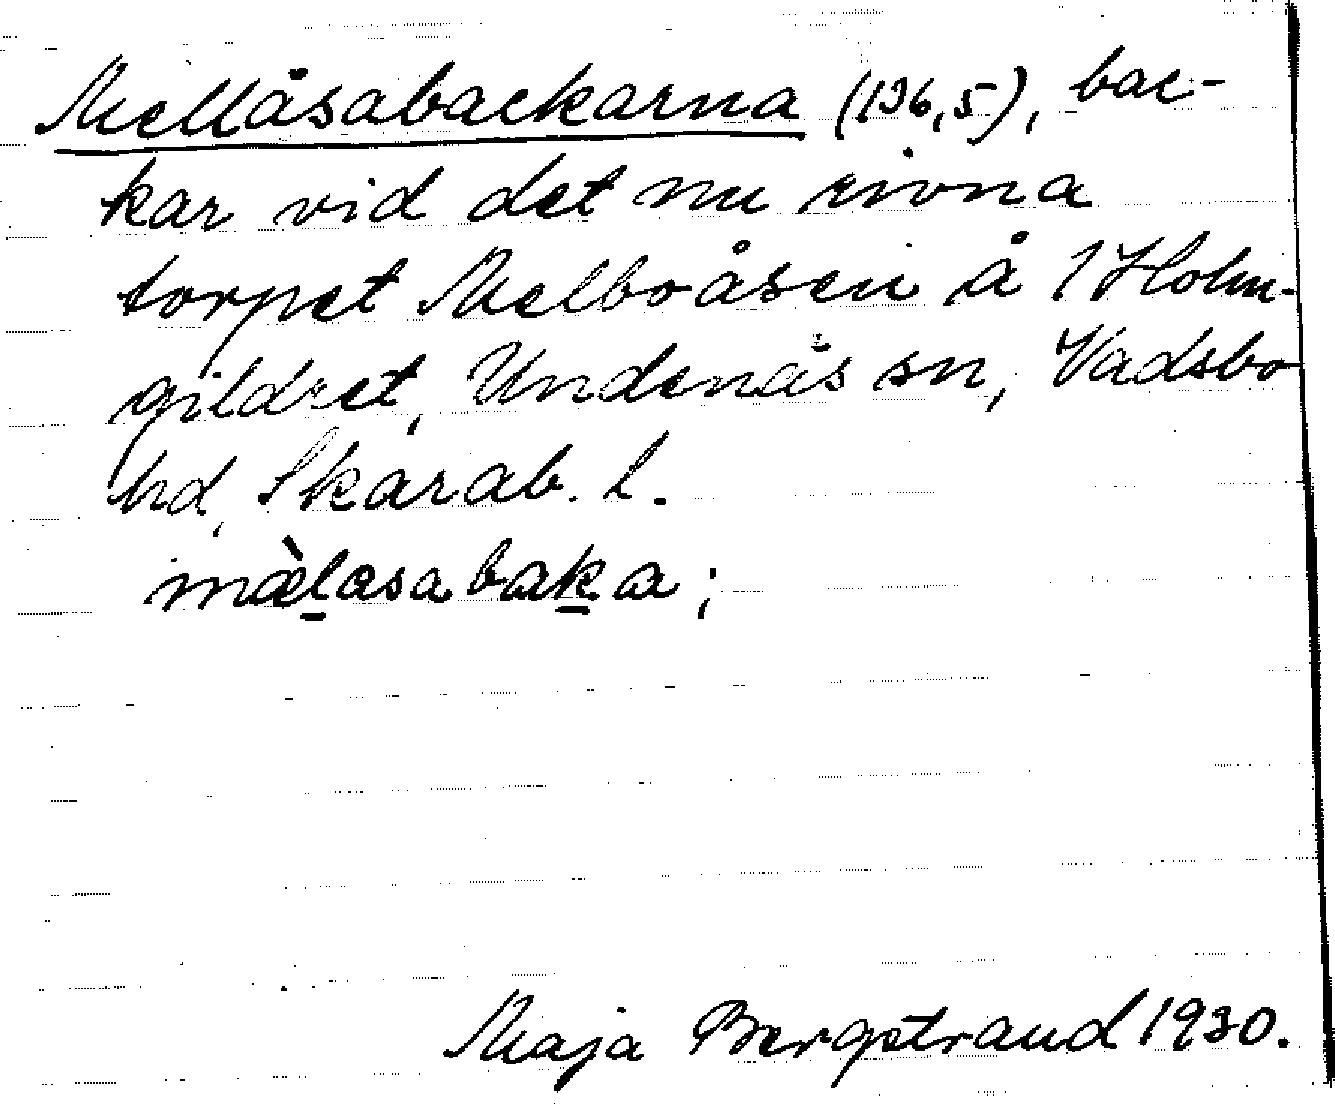 Mellåsabackarna (136,5), bac-
kar vid det nu rivna
torpet Melboåsen å 1 Holm-
gildret, Undenäs sn, Vadsbo
hd, Skarab. l.
mæ̀lasabaka;
Maja Bergstrand 1930.